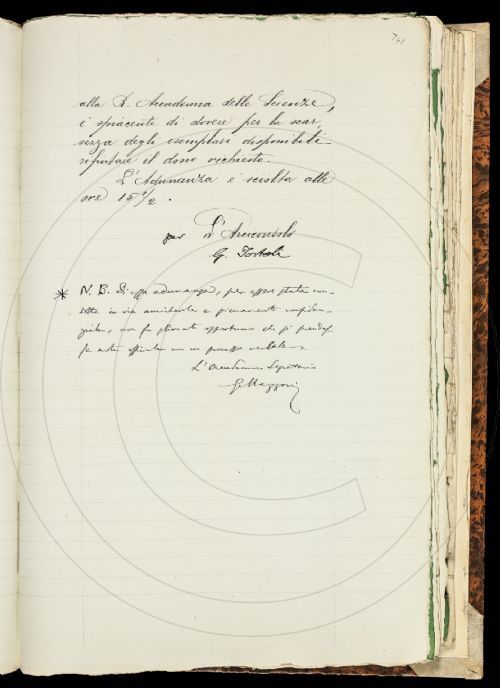 741
alla R. Accademia delle Scienze,
è spiacente di dovere per la scar
sezza degli esemplari disponibili
rifiutare il dono richiesto.
L'Adunanza è sciolta alle
ore 15 1/2.
per L'Arciconsolo
G. Tortoli
* N. B. Di essa adunanza, per essere stata con-
dotta in via amichevole e pienamente confiden-
ziale, non fu stimato opportuno che si prendes
se nota officiale con un processo verbale.
L'Accademico Segretario
G Mazzoni